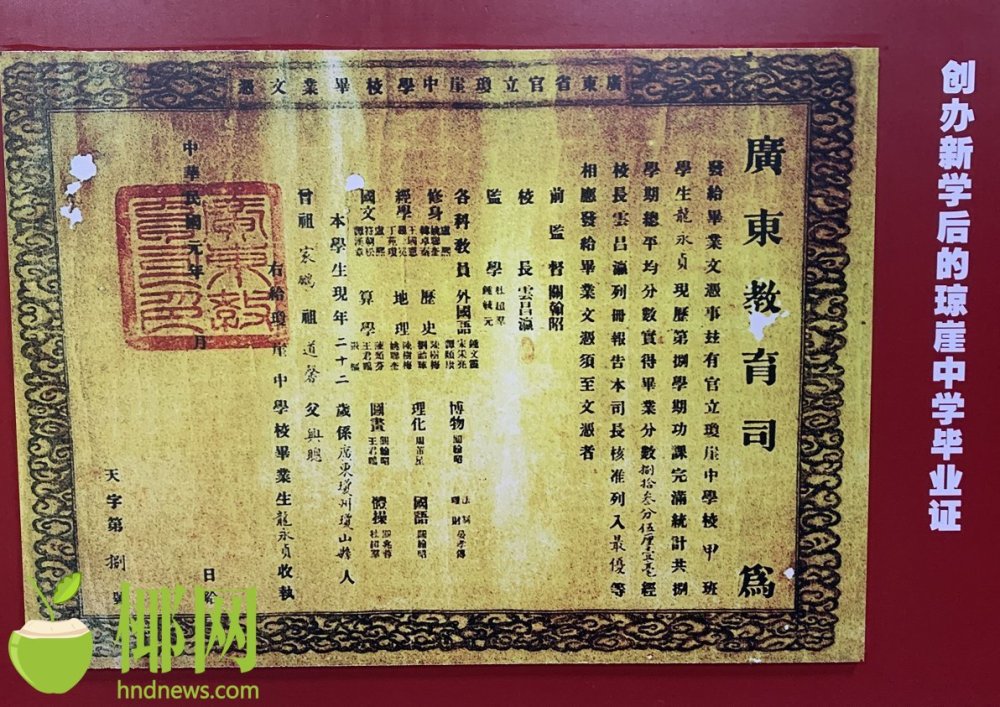 創办新学后的琼崖中学毕业证
廣東省官立瓊崖中學校畢業文憑
廣東教育司 爲
發給畢業文憑事茲有官立瓊崖中學校甲班
學生龍永貞現歷第捌學期功課完滿統計共捌
學期總平均分數實得畢業分數捌拾叁分伍厘壹毫經
校長雲昌瀛列冊報告本司長核准列入最優等
相應發給畢業文憑須至文憑者
前監督關翰昭
校長雲昌瀛
監學 杜超羣 鍾毓元
各科教員 外國語 博物 關翰昭
修身 歷史 理化 國語 關翰昭
經學 地理 圖畫 體操 杜超羣
國文 算學
本學生現年二十二歲係廣東瓊州瓊山縣人
曾祖家鵬 祖道馨 父興聰
右給瓊崖中學校畢業生龍永貞收執
中華民國元年 月 日給
天字第捌號
椰网
hndnews.com